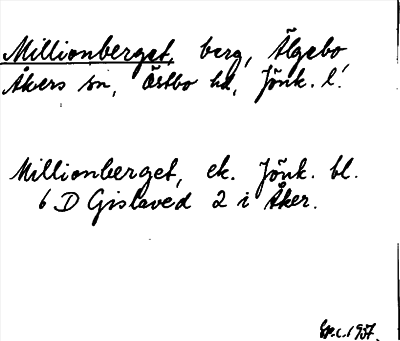 Millionberget, berg, Älgebo
Åkers sn, Östbo hd, Jönk. l.
Millionberget, ek. Jönk. bl.
6 D Gislaved 2 i Åker.
1957.